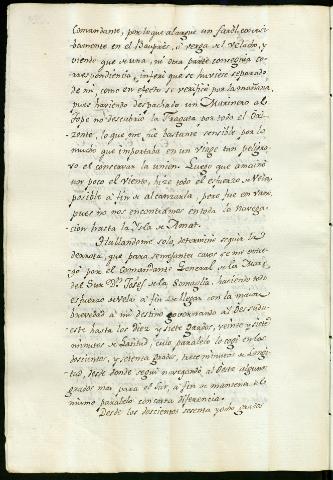 Comandante, por lo que alargué un farol consecu-
bamente en el Bauprés, o verga de el velacho, y
viendo que de una, ni otra parte conseguia co-
rrespondiencia, inferí que se huviese separado
de mi, como en efecto se verificó por la mañana
pues haviendo despachado un Marinero al
Tope no descubrió la Fragata por todo el Ori-
zonte, lo que me fue bastante sensible por lo
mucho que importaba en un viage tan peligro-
so el conservar la union. Luego que amainó
un poco el viento, hize todo el esfuerzo de Vela
posible a fin de alcanzarla, pero fue en vano,
pues no nos encontramos en toda la Navega-
cion hasta la Ysla de Amat.
Hallandome solo, determiné seguir la
derrota, que para semejantes casos se me entre-
gó por el Comandante General de la Mar
del Sur Dn. Josef de la Somaglia, haciendo todo
esfuerzo de vela a fin de llegar con la maior
brevedad a mi destino governando al Oessudu-
este hasta los Diez y siete grados, veinte y siete
minutos de Latitud, cuio paralelo lo cogí en los
doscientos, y setenta grados, trece minutos de Longi-
tud, desde donde seguí navegando al Oeste algunos
grados mas para el Sur, a fin de mantener el
mismo paralelo con corta diferencia.
Desde los doscientos sesenta y ocho grados